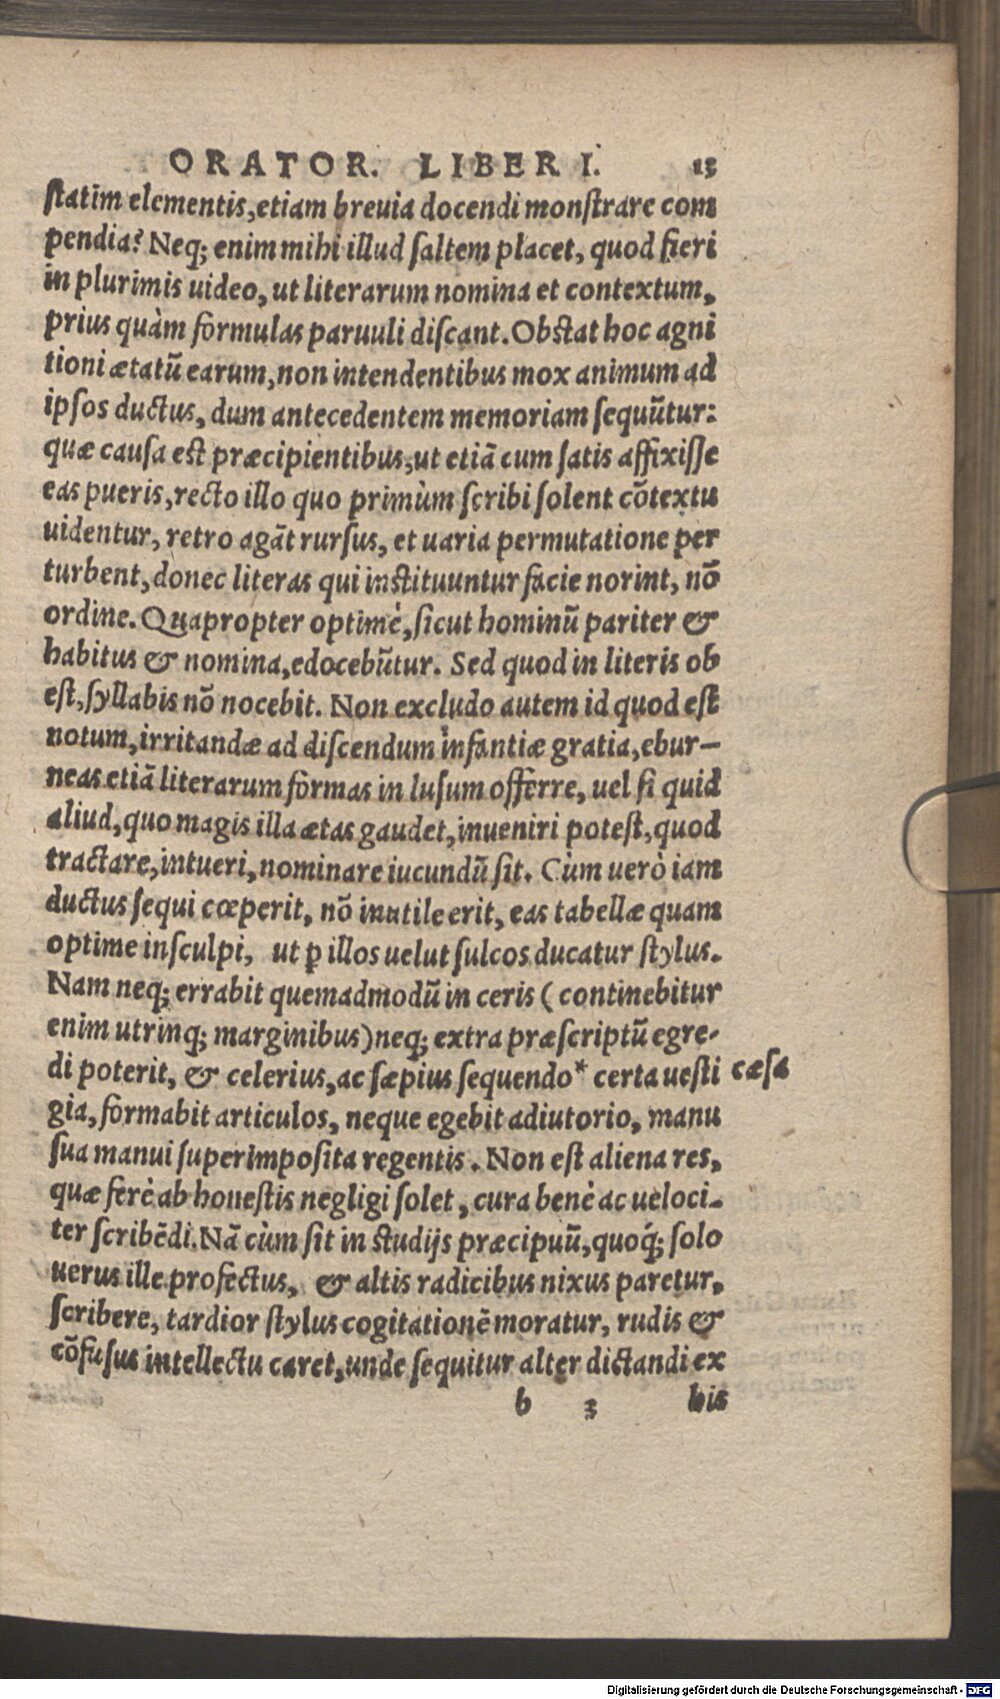 ORATOR. LIBER I. 13
ſtatim elementis, etiam breuia docendi monſtrare com
pendia? Neq; enim mihi illud ſaltem placet, quod fieri
in plurimis uideo, ut literarum nomina et contextum,
prius quàm formulas paruuli diſcant. Obſtat hoc agni
tioni ætatũ earum, non intendentibus mox animum ad
ipſos ductus, dum antecedentem memoriam ſequũtur:
quæ cauſa eſt præcipientibus, ut etiã cum ſatis affixiſſe
eas pueris, recto illo quo primùm ſcribi ſolent cõtextu
uidentur, retro agãt rurſus, et uaria permutatione per
turbent, donec literas qui inſtituuntur facie norint, nõ
ordine. Quapropter optimè, ſicut hominũ pariter &
habitus & nomina, edocebũtur. Sed quod in literis ob
eſt, ſyllabis nõ nocebit. Non excludo autem id quod eſt
notum, irritandæ ad diſcendum infantiæ gratia, ebur-
neas etiã literarum formas in luſum offerre, uel ſi quid
aliud, quo magis illa ætas gaudet, inueniri poteſt, quod
tractare, intueri, nominare iucundũ ſit. Cùm uerò iam
ductus ſequi cœperit, nõ inutile erit, eas tabellæ quam
optime inſculpi, ut ꝑ illos uelut ſulcos ducatur ſtylus.
Nam neq; errabit quemadmodũ in ceris (continebitur
enim utrinq; marginibus) neq; extra præſcriptũ egre-
di poterit, & celerius, ac ſæpius ſequendo* certa ueſti cæſa
gia, formabit articulos, neque egebit adiutorio, manu
ſua manui ſuperimpoſita regentis. Non eſt aliena res,
quæ ferè ab honeſtis negligi ſolet, cura benè ac ueloci-
ter ſcribẽdi. Nã cùm ſit in ſtudijs præcipuũ, quoq́; ſolo
uerus ille profectus, & altis radicibus nixus paretur,
ſcribere, tardior ſtylus cogitationẽ moratur, rudis &
cõfuſus intellectu caret, unde ſequitur alter dictandi ex
b 3 his
Digitalisierung gefördert durch die Deutsche Forschungsgemeinschaft - DFG